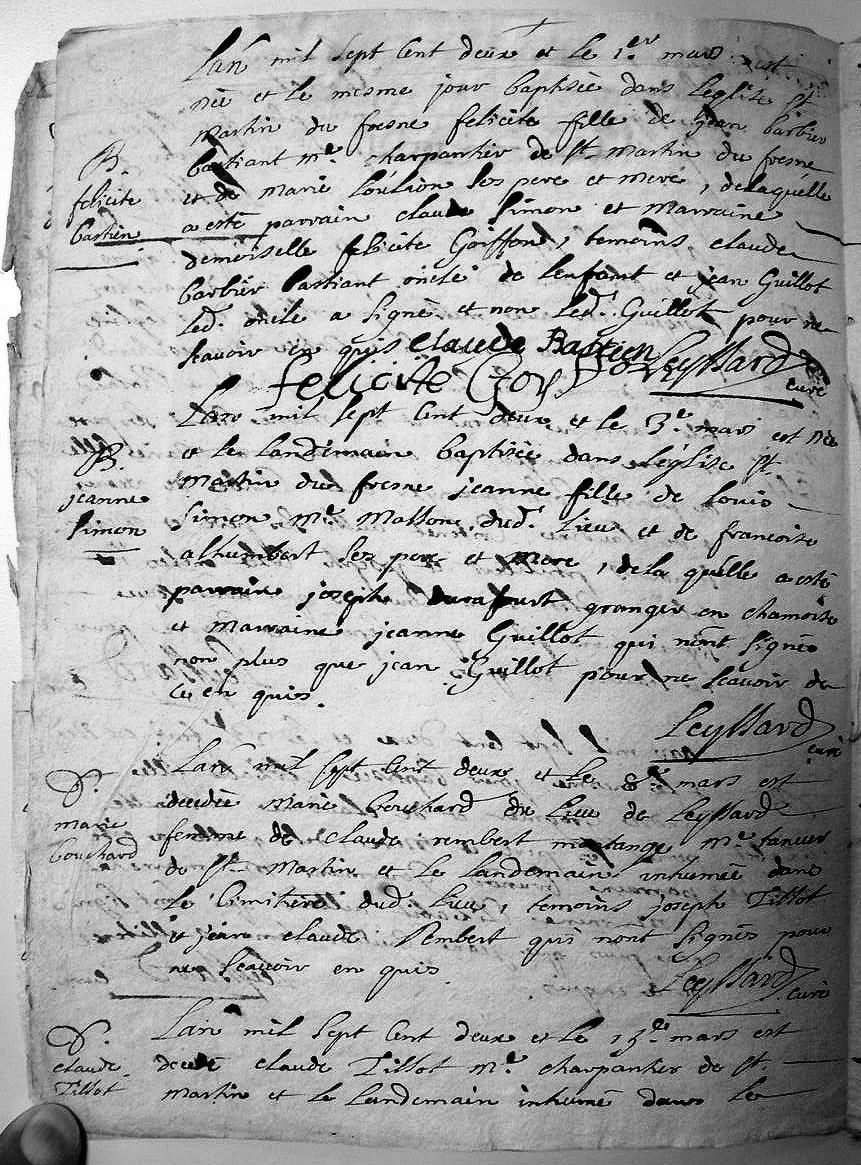 Lan mil sept Cent deux et le 1er mars est
née et le mesme jour baptisée dans Leglise St
Martin du fresne felicite fille de jean barbier
B.
felicite
bastien
bastiant me charpantier de St Martin du fresne
et de Marie Loulion ses pere et mere, delaquelle
a esté parrain claude simon et Marraine
demoiselle felicite Goiffon, temoins claude
barbier bastiant oncle de lenfant et jean Guillot
Led. oncle a signé et non Led. Guillot pour ne
scavoir en quis Claude Bastien Leyssard
felicite Goyffon curé
Lan mil sept Cent deux et le 3e mars est née
et le landemain baptisée dans Léglise St
B.
jeanne
simon
Martin du fresne jeanne fille de louis
simon Me Masson dud. Lieu et de francoise
alhumbert ses pere et mere, dela quelle a esté
parrain joseph granger en chamoise
et Marraine jeanne Guillot qui nont signés
non plus que jean Guillot pour ne scavoir de
ce en quis.
Leyssard
curé
Lan mil sept Cent deux et le 8e mars est
D.
marie
bouchard
decedée Marie bouchard du Lieu de Leyssard
femme de Claude rembert Me
de St Martin et le landemain inhumée dans
Le Cimitiere dud. Lieu, temoins joseph Tillot
et jean claude Rembert qui nont signés pour
ne scavoir en quis
Leyssard
curé
Lan mil sept Cent deux et le 13e mars est
D.
claude
Tillot
decedé claude Tillot Me charpantier de St.
Martin et le landemain inhumé dans le